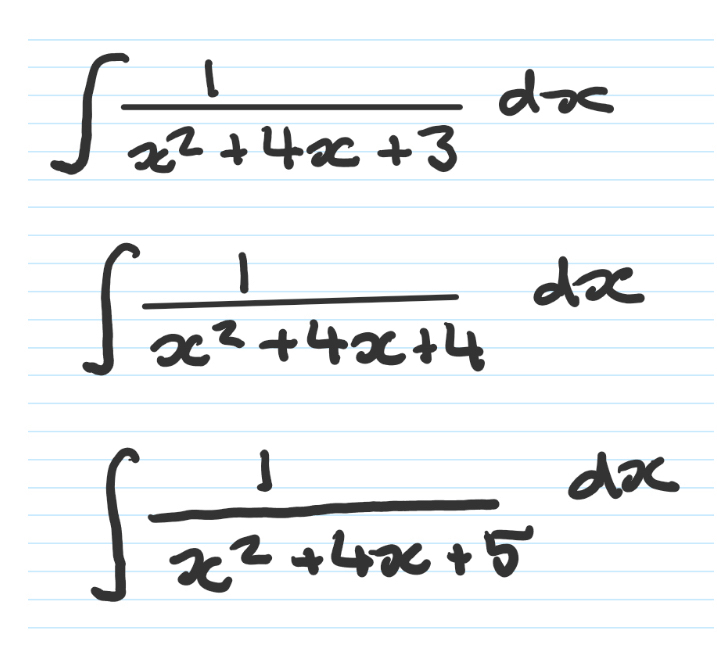 ∫ 1/(x² + 4x + 3) dx
∫ 1/(x² + 4x + 4) dx
∫ 1/(x² + 4x + 5) dx